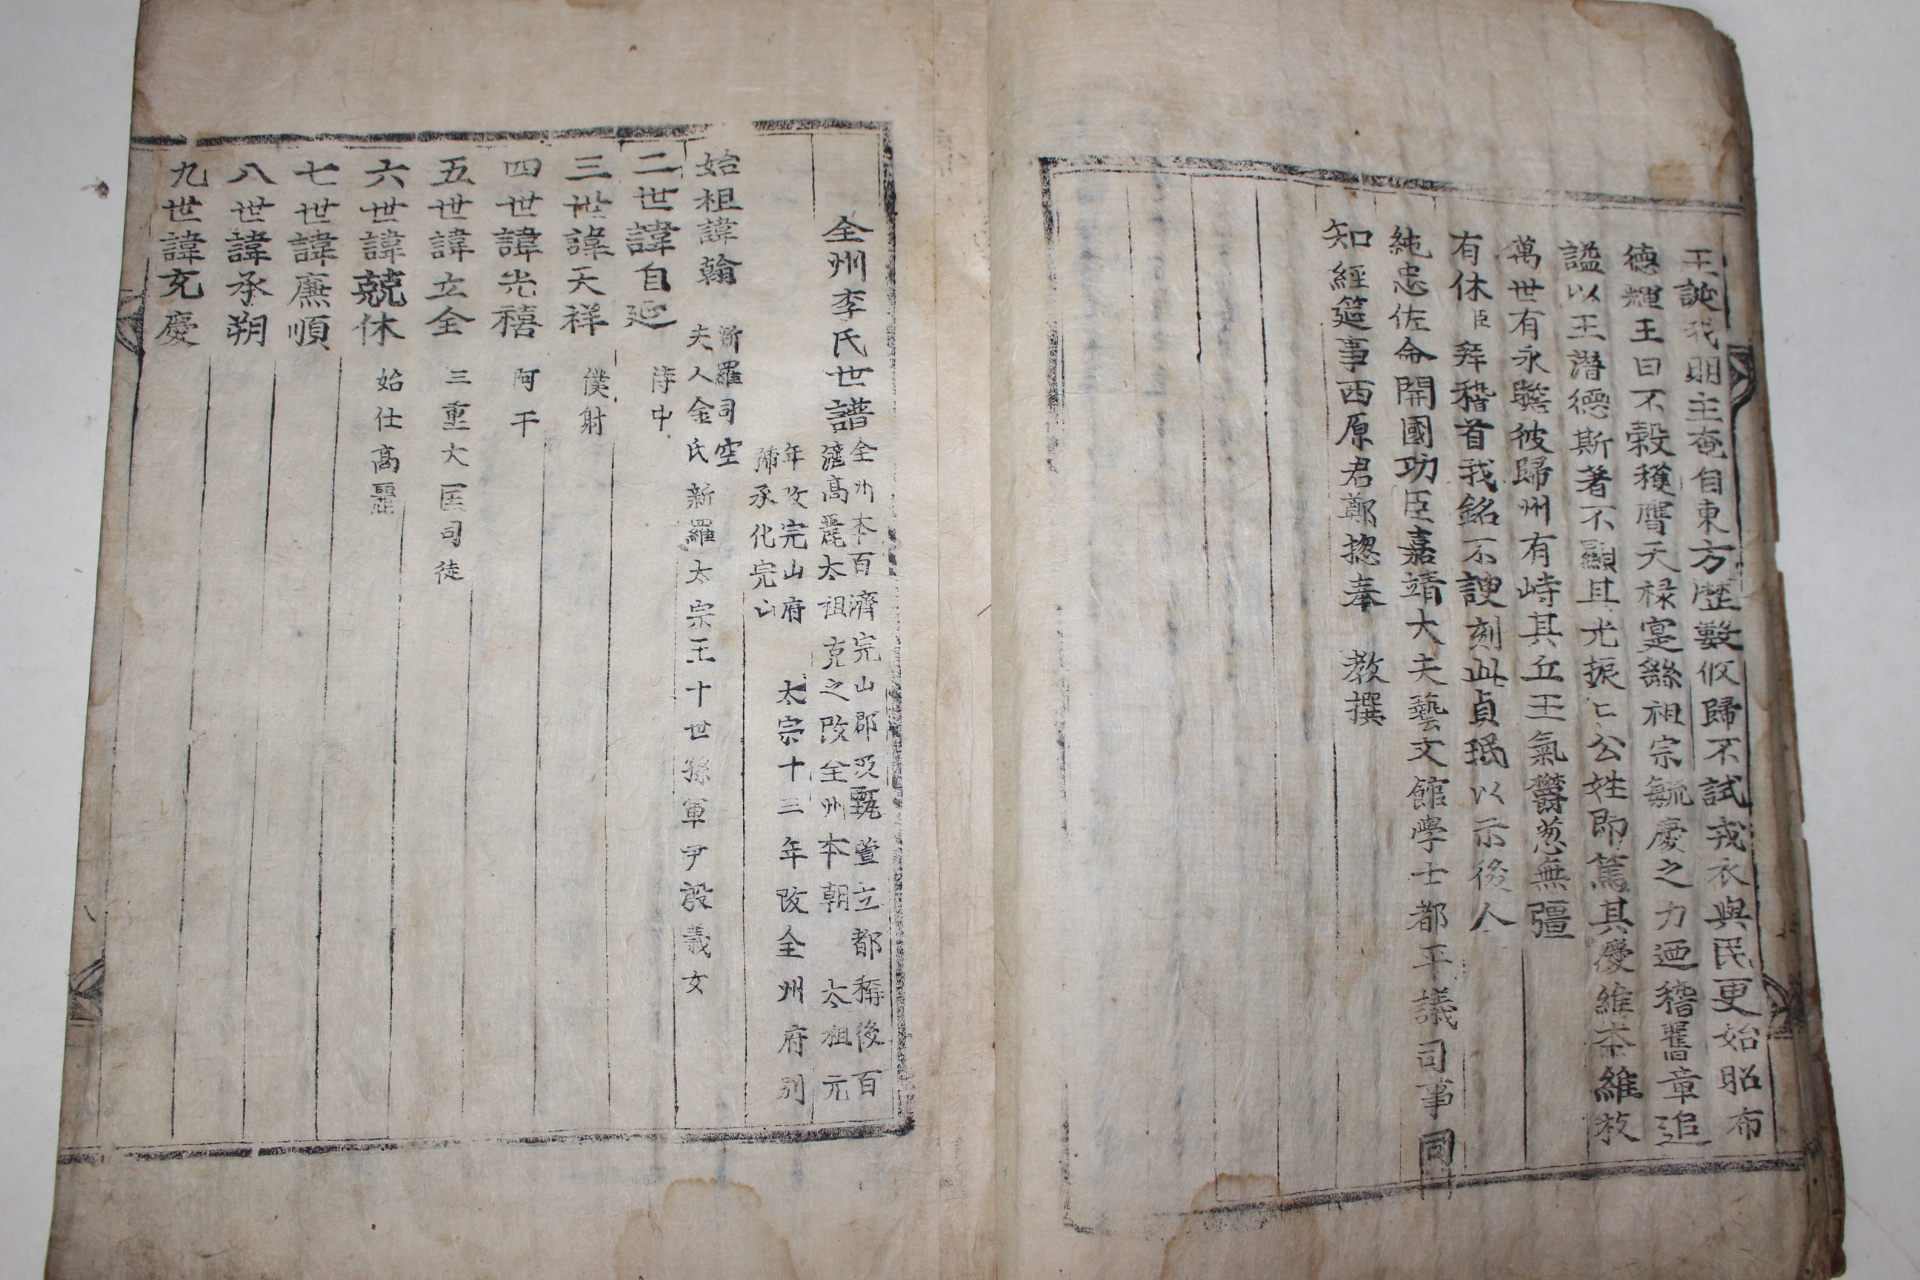 王誕我明主奄自東方歷數攸歸不試戎衣與民更始昭布
德輝王曰不穀獲膺天祿寔繇祖宗毓慶之力迺稽舊章追
諡以王潛德斯著不顯其光振〻公姓即篤其慶維本維枝
萬世有永鑒彼歸州有峙其丘王氣欝葱無疆
有休臣拜稽首我銘不諛刻此貞珉以示後人
純忠佐命開國功臣嘉靖大夫藝文館學士都平議司事同
知經筵事西原君鄭摠奉 教撰
全州李氏世譜
全州本百濟完山郡及甄萱立都稱後百
濟高麗太祖克之改全州本朝 太祖元
年改完山府 太宗十三年改全州府別
稱承化完山
始祖諱翰
新羅司空
夫人金氏新羅太宗王十世孫軍尹殷義女
二世諱自延 侍中
三世諱天祥 僕射
四世諱光禧 阿干
五世諱立全 三重大匡司徒
六世諱兢休 始仕高麗
七世諱廉順
八世諱承朔
九世諱充慶